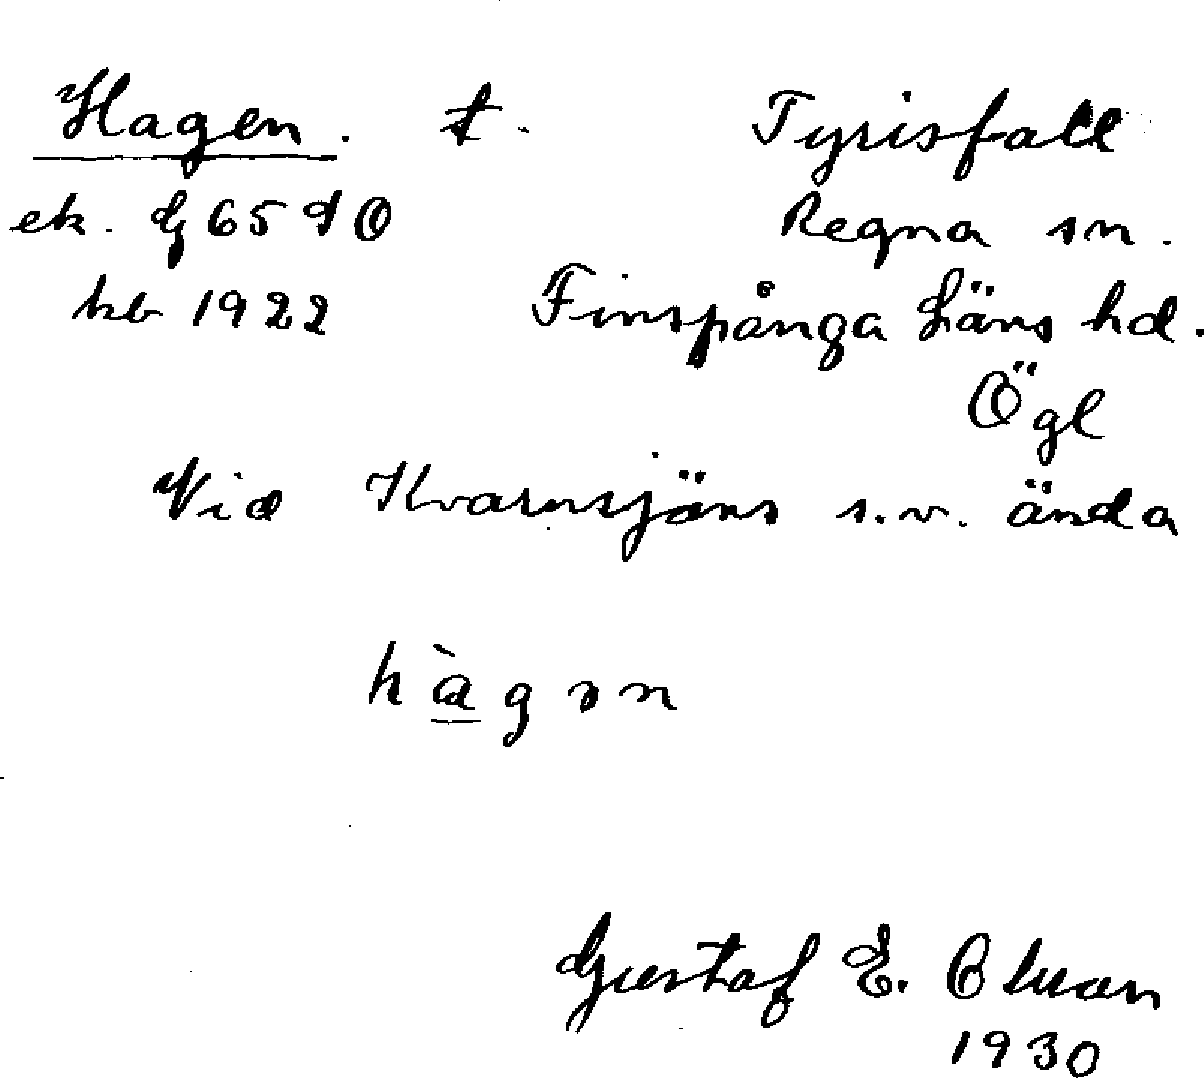 Hagen. t. Tyrisfall
ek. G 65 SO Regna sn.
kb 1922 Finspånga läns hd.
Ögl
Vid Kvarnsjöns s.v. ända
hàgən
Gustaf E. Oluan
1930